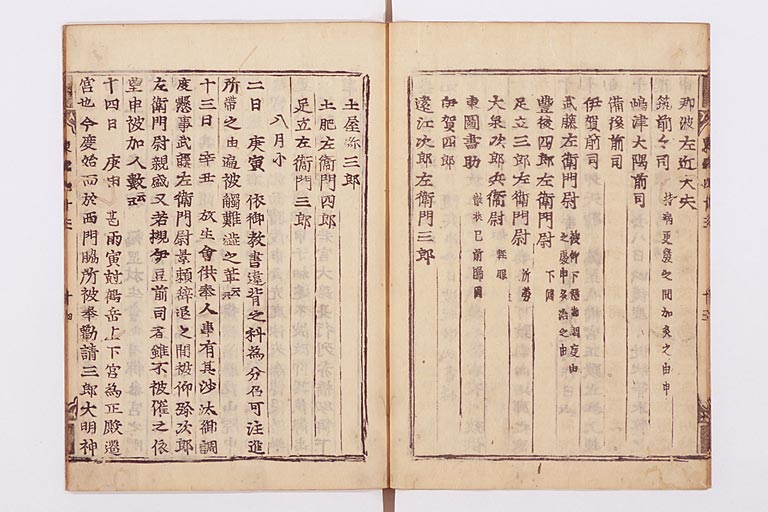 那波左近大夫
筑前々司 持病更發之間加灸之由申
嶋津大隅前司
備後前司
伊賀前司
武藤左衛門尉
豊後四郎左衛門尉
足立三郎左衛門尉 所労
大泉次郎兵衛尉 軽服
東圖書助
伊賀四郎
遠江次郎左衛門三郎
土屋弥三郎
土肥左衛門四郎
足立左衛門三郎
八月小
二日 庚寅 依御教書違背之科為分召可注進
所帯之由遍被觸難澁之輩云々
十三日 辛丑 放生會供奉人事有其沙汰御調
度懸事武藤左衛門尉景頼辞退之間被仰弥次郎
左衛門尉親盛又若槻伊豆前司者雖不被催之依
望申被加人數云々
十四日 庚申 甚雨寅尅鶴岳上下宮為正殿遷
宮也今度始而於西門脇所被奉勸請三郎大明神